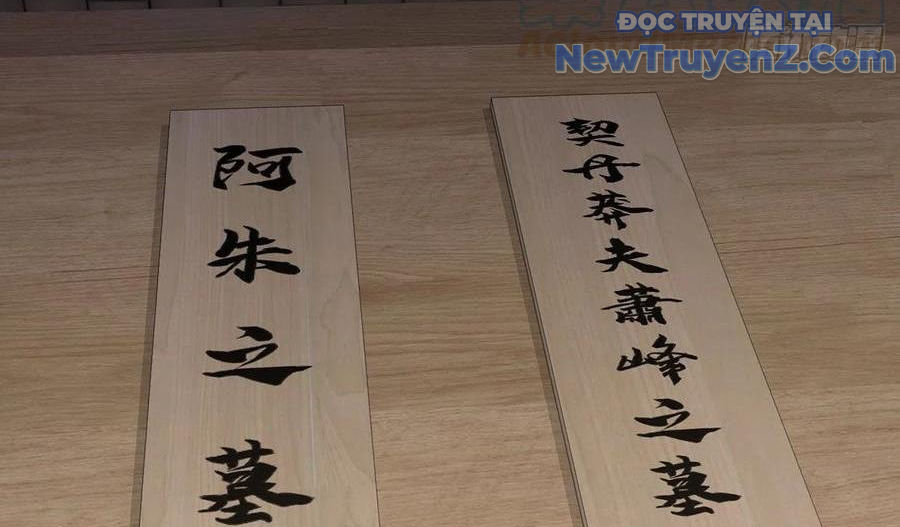 ĐỌC TRUYỆN TẠI
NewTruyenZ.com
阿朱之墓
契丹莽夫蕭峰之墓